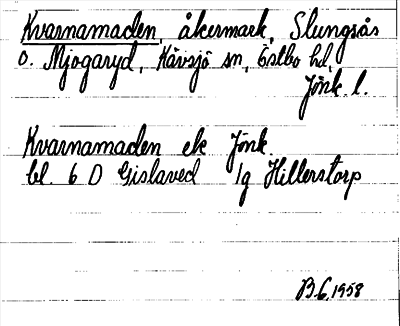 Kvarnamaden, åkermark, Slungsås
o. Mjogaryd, Kävsjö sn, Östbo hd,
Jönk. l.
Kvarnamaden ek Jönk.
bl. 6 D Gislaved 1g Hillerstorp
B.G. 1958